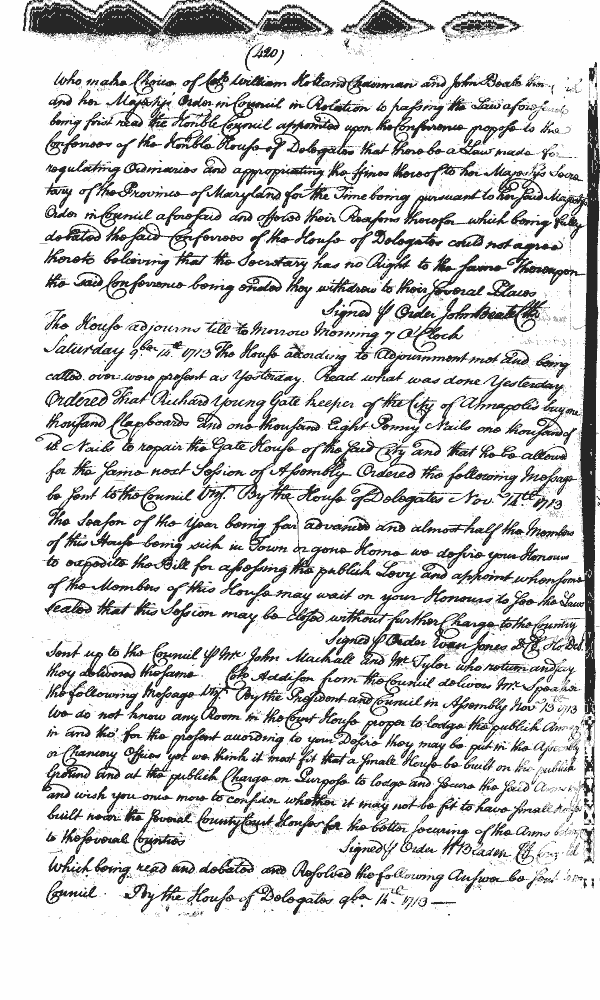 (420)
Who make Choice of Coll William Holland Chairman and John Beale their
and her Majestys Order in Council in Relation to passing the Law aforesaid
being first read the Honble Council appointed upon the Conference propose to the
Conferrees of the Honble House of Delegates that there be a Law made for
regulating Ordinaries and appropriating the ffines thereof to her Majestys Secre
tary of the Province of Maryland for the Time being pursuant to her said Majestys
Order in Council aforesaid and offered their Reasons therefor which being fully
debated the said Conferrees of the House of Delegates could not agree
thereto believing that the Secretary has no Right to the same Thereupon
the said Conference being ended they withdrew to their several Places
Signed P Order John Beale Clk
The House adjourns till to Morrow Morning 7 O Clock
Saturday 9ber 14th 1713 The House according to Adjournment met and being
called over were present as Yesterday. Read what was done Yesterday
Ordered That Richard Young Gate keeper of the City of Annapolis buy one
thousand Clapboards and one thousand Eight Penny Nails one thousand of
Nails to repair the Gate House of the said City and that he be allowed
for the same next Session of Assembly. Ordered the following Message
be sent to the Council Vizt. By the House of Delegates Nov. 14th 1713
The Season of the Year being far advanced and almost half the Members
of this House being sick in Town or gone Home we desire your Honours
to expedite the Bill for assessing the publick Levy and appoint when some
of the Members of this House may wait on your Honours to see the Laws
sealed that this Session may be closed without further Charge to the Country
Signed P Order Evan Jones D. C. Ho Del.
Sent up to the Council P Mr. John Mackall and Mr. Tyler who return and say
they delivered the same Coll Addison from the Council delivers Mr. Speaker
the following Message Vizt. By the President and Council in Assembly Nov 13 1713
We do not know any Room in the Court House proper to lodge the publick Arms
in and tho' for the present according to your Desire they may be put in the Assembly
or Chancery Offices yet we think it most fit that a small House be built on the publick
Ground and at the publick Charge on Purpose to lodge and secure the said Arms
and wish you once more to consider whether it may not be fit to have small
built near the several County Court Houses for the better securing of the Arms
to the several Counties
Signed P Order W Bladen Cl
Which being read and debated and Resolved the following Answer be sent
Council By the House of Delegates 9ber 14th 1713